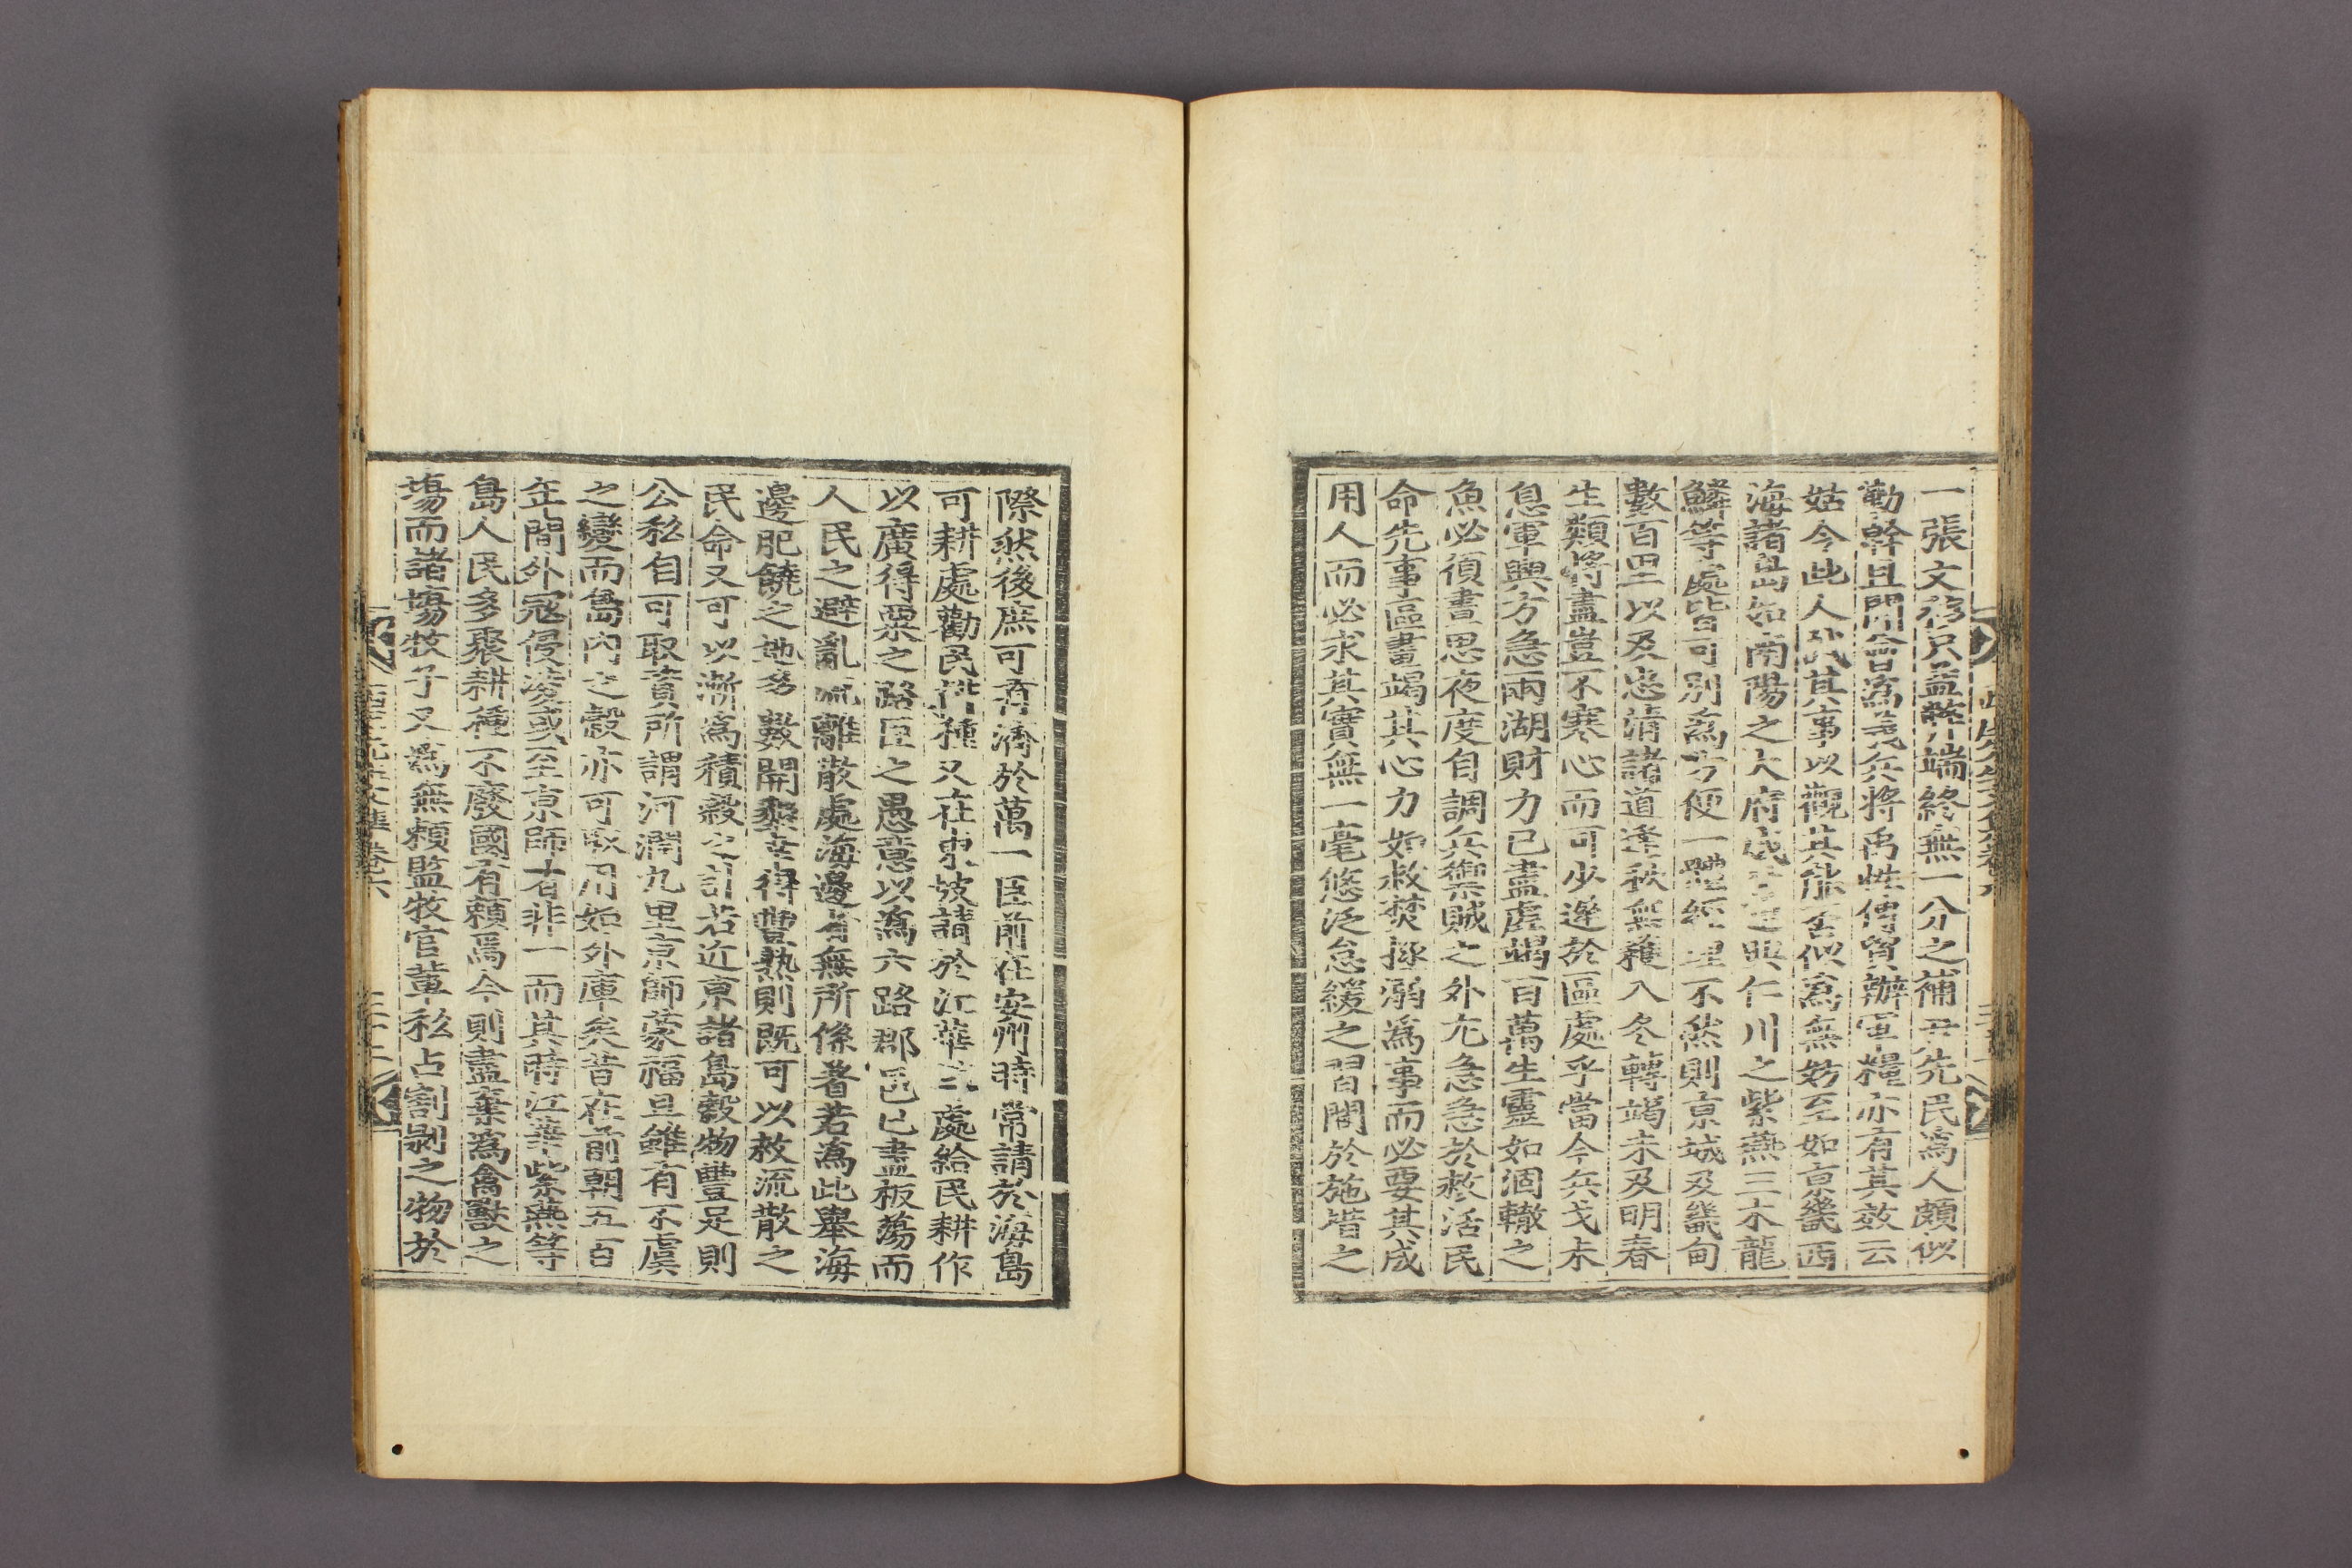 一張文移只益弊端終無一分之補尹先民爲人頗似
勤幹且聞會爲義兵將禹性傳貿辦軍糧亦有其效云
姑令此人試其事以觀其能否似爲無妨至如京畿西
海諸島如南陽之大府與仁川之紫燕三木龍
鱗等處皆可別爲方便一體經理不然則京城及畿甸
數百里以及忠淸諸道逢秋無穫入冬轉竭未及明春
生類將盡豈不寒心而可少遲於區處乎當今兵戈未
息軍興方急兩湖財力已盡虛竭百萬生靈如涸轍之
魚必須晝思夜度自調兵禦賊之外尤急急於救活民
命先事區畫竭其心力如救焚拯溺爲事而必要其成
用人而必求其實無一毫悠泛怠緩之習閒於施措之
際然後庶可有濟於萬一臣前在安州時常請於海島
可耕處勸民耕種又在東坡請於江華等處給民耕作
以廣得粟之路臣之愚意以爲六路郡邑已盡板蕩而
人民之避亂流離散處海邊者無所係著若爲此擧海
邊肥饒之地多數開墾幸得豐熟則既可以救流散之
民命又可以漸爲積穀之計若近京諸島穀物豐足則
公私自可取資所謂河潤九里京師蒙福且雖有不虞
之變而島內之穀亦可取用如外庫矣昔在前朝五百
年間外冦侵凌或至京師者非一而其時江華紫燕等
島人民多聚耕種不廢國有賴焉今則盡棄爲禽獸之
場而諸場牧子又爲無賴監牧官輩私占割剝之物於
西厓先生文集卷六 三十二